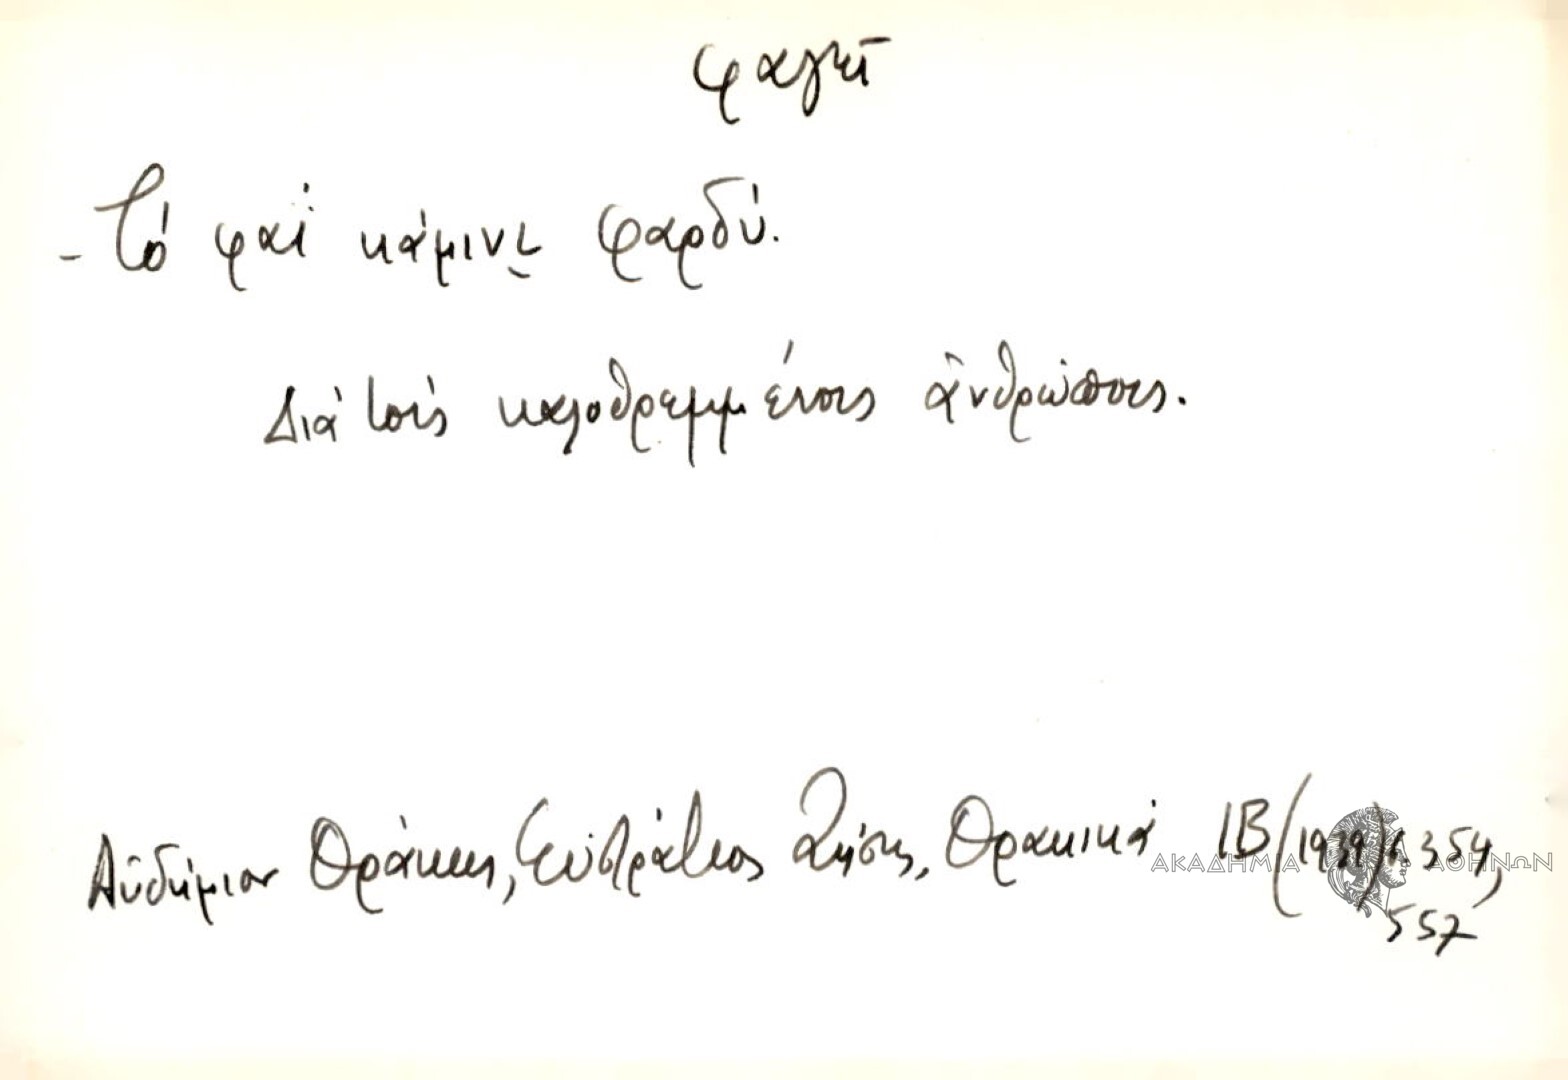 φαγητ
- Τό φαΐ κάμινι̮ φαρδύ.
Διά τούς καλοθρεμμένους ἀνθρώπους.
Αὐδήμιον Θράκης, Εὐστράτιος Ζήσης, Θρακικά ΙΒ (1939) σ. 354,
557
ΑΚΑΔΗΜΙΑ ΑΘΗΝΩΝ